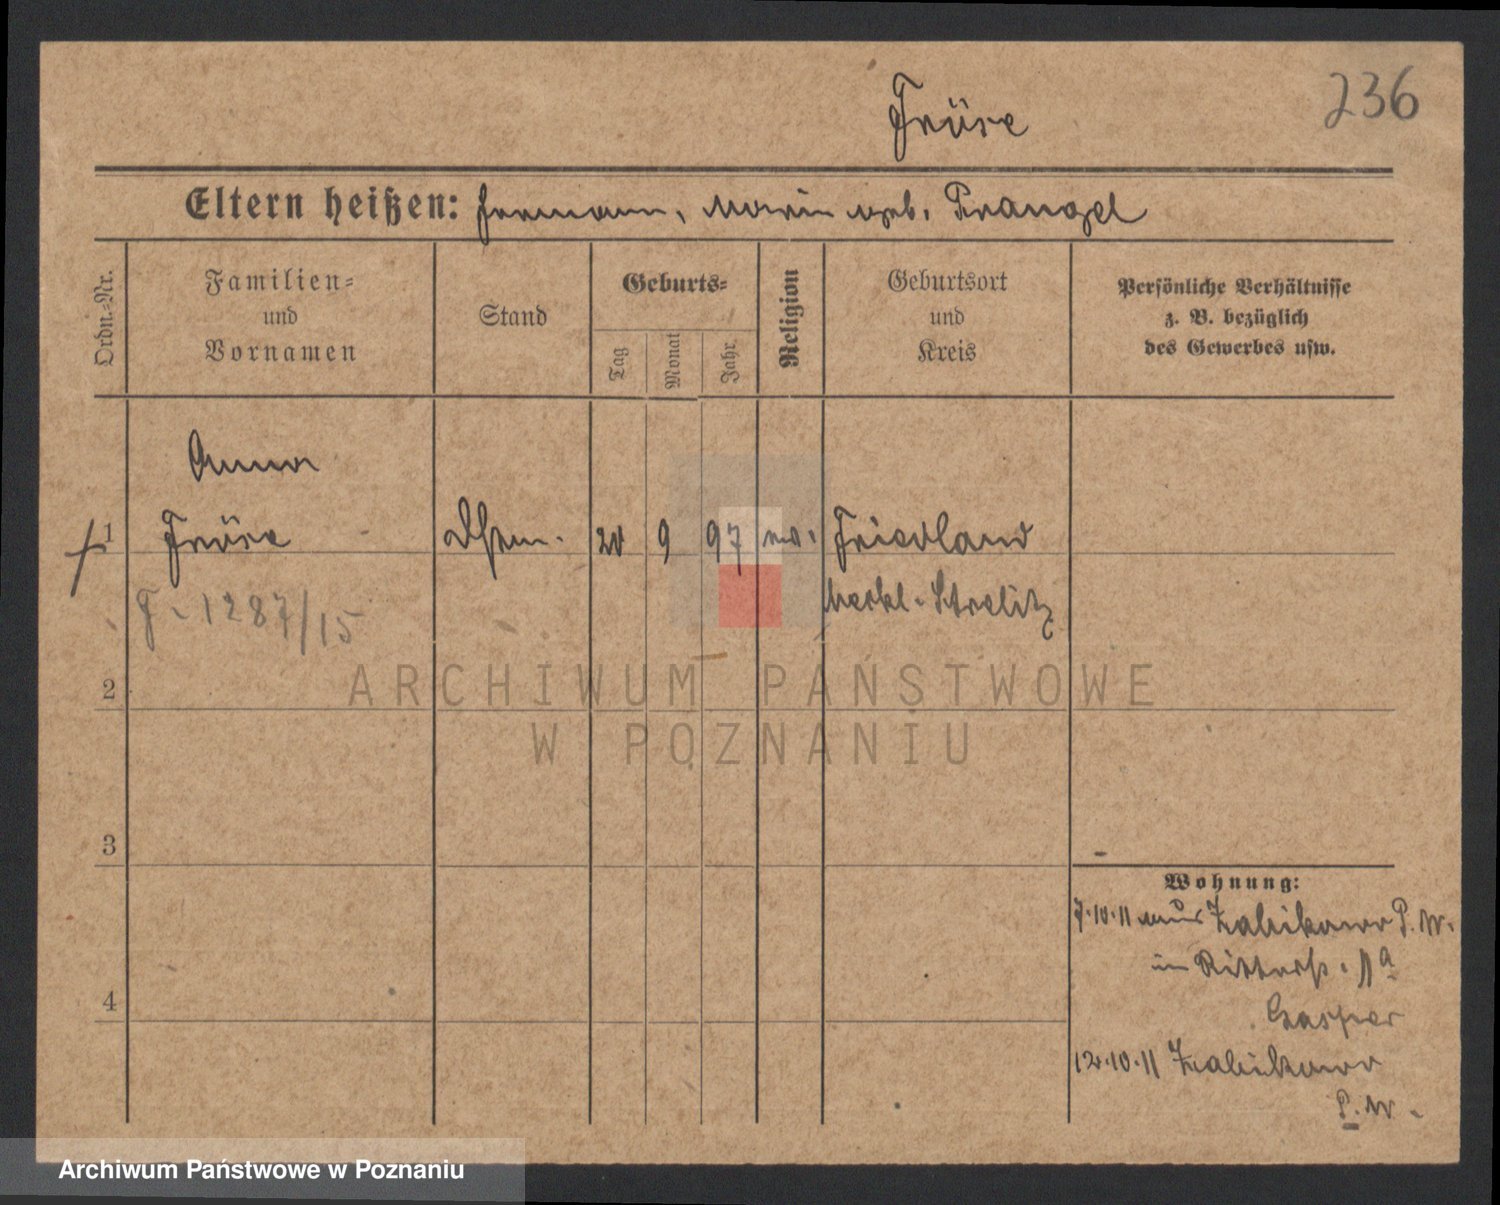 Fröse 236
Eltern heißen: Hermann, Marie geb. Prangel
Ordn.-Nr.
Familien-
und
Vornamen
Stand
Geburts-
Tag
Monat
Jahr
Religion
Geburtsort
und
Kreis
Persönliche Verhältnisse
z. B. bezüglich
des Gewerbes usw.
Anna
1 Fröse 20 9 97 ev. Friedland
F. 1287/15 Meckl. Strelitz
2
3
4
Wohnung:
7.10.11 aus Zabikowo P. W.
in Ritterstr. 11a
Gasper
12.10.11 Zabikowo
P. W.
ARCHIWUM PAŃSTWOWE
W POZNANIU
Archiwum Państwowe w Poznaniu